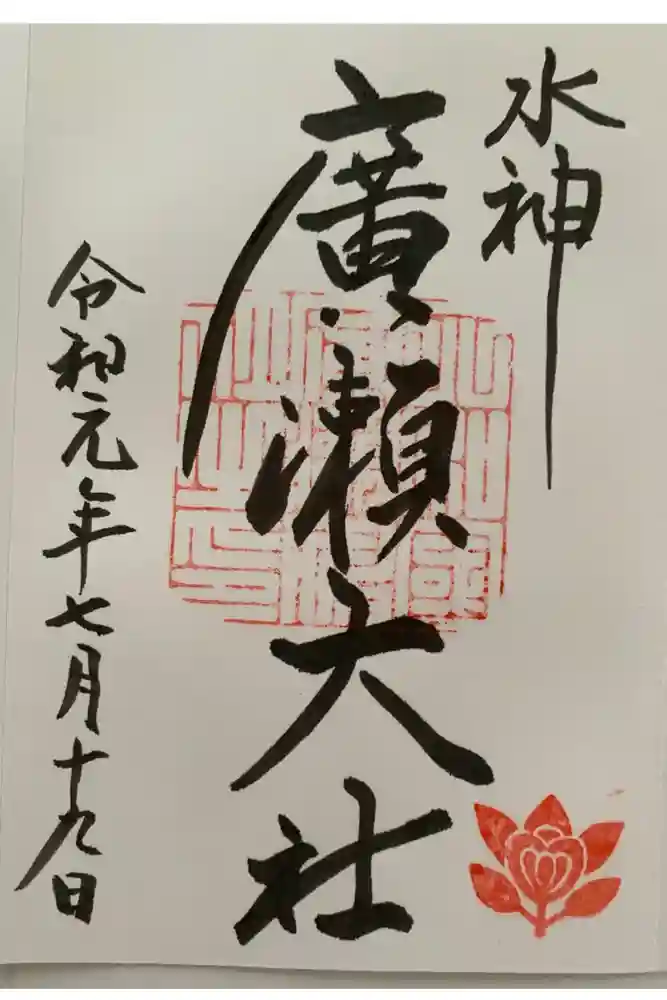 水神
廣瀬大社
令和元年七月十九日